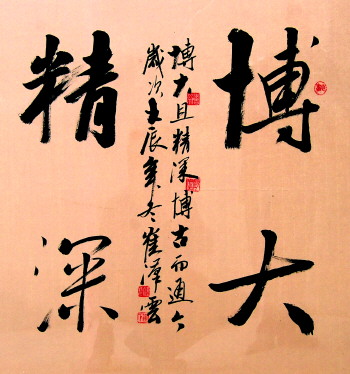 博大
精深
博大且精深博古而通今
歲次壬辰年冬崔澤雲